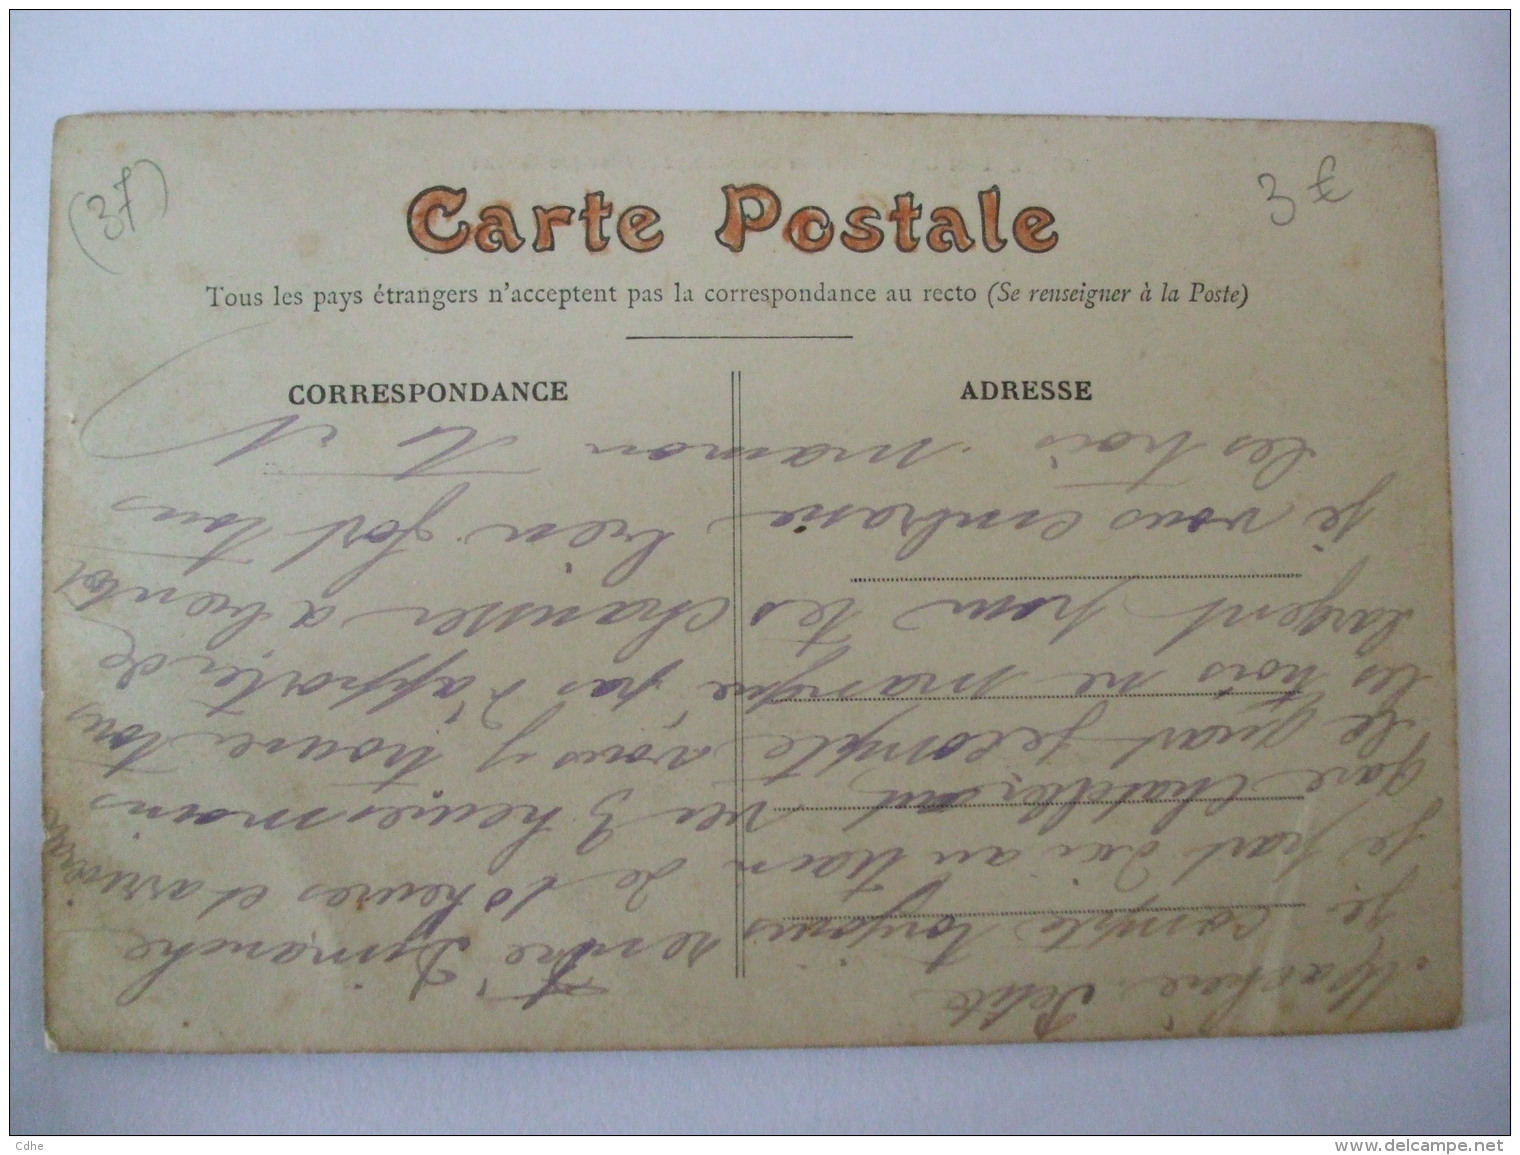 (37)
3 €
Carte Postale
Tous les pays étrangers n'acceptent pas la correspondance au recto (Se renseigner à la Poste)
CORRESPONDANCE
ADRESSE
Ma chère Petite
je compte toujours rendre Dimanche
je part d'ici au train de 10 heures et arrivera
gare Chatelleraut ver 3 heures moins
le quart je compte vous y trouver tous
les trois ne manque pas d'apporter de
largent pour tes chausser a bientot
je vous embrasse bien fort tous
les trois maman
Cdhe
www.delcampe.net